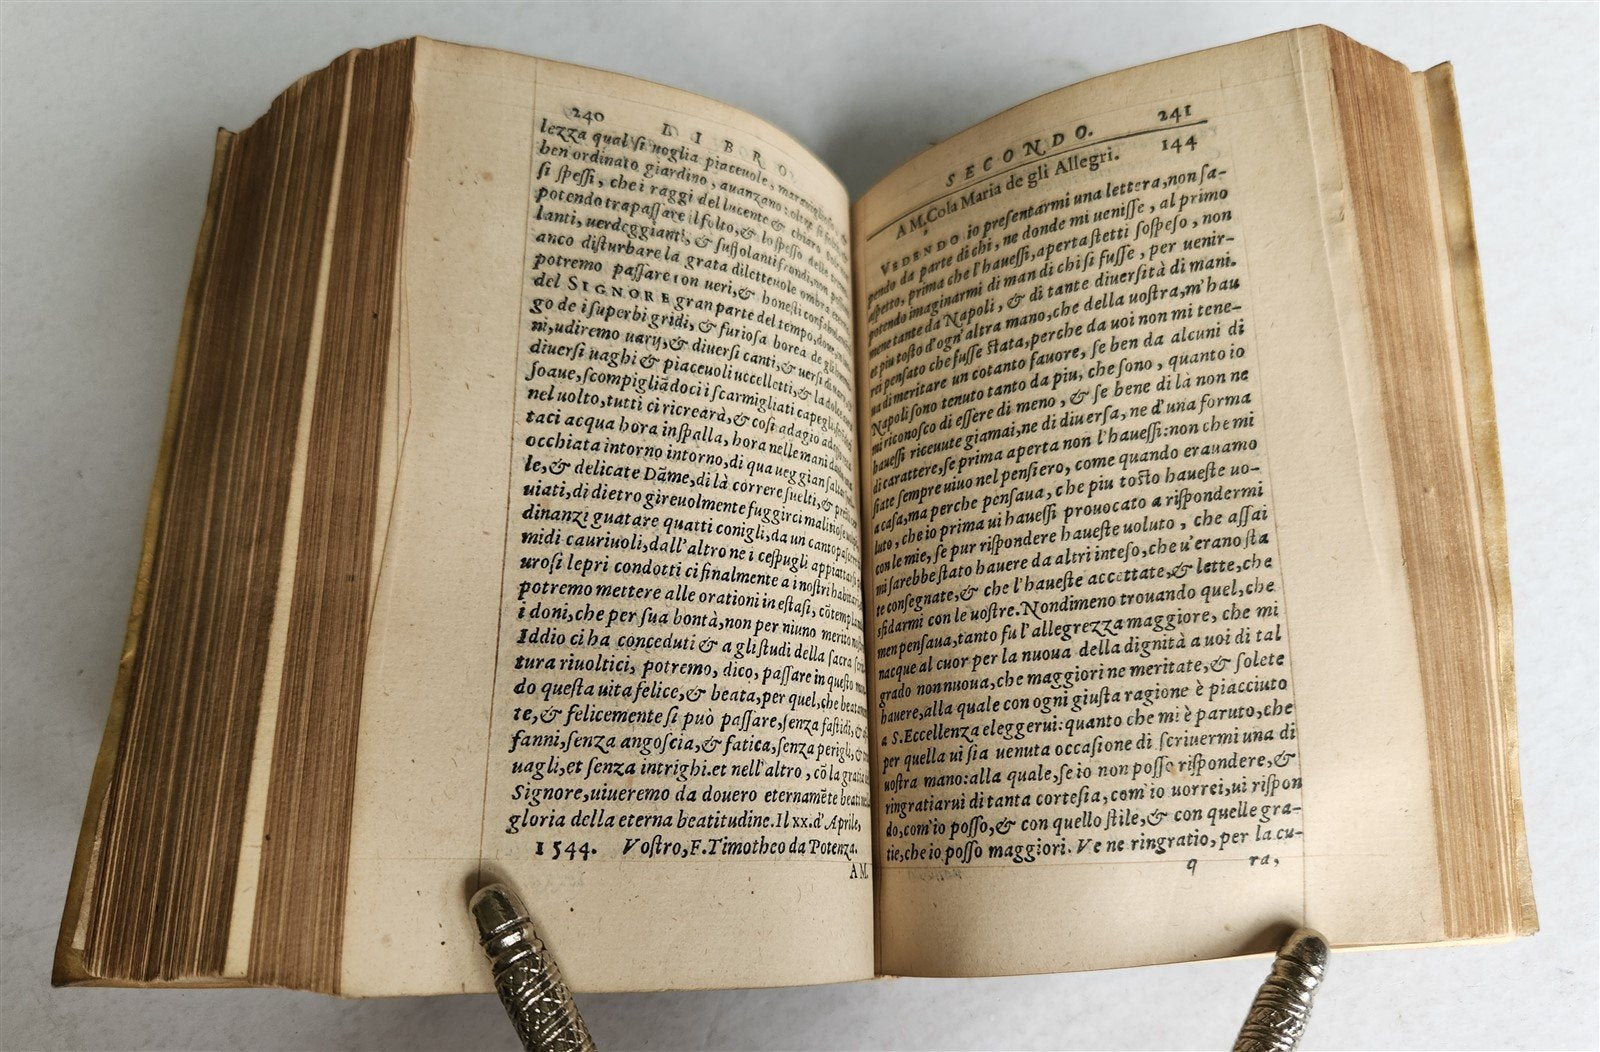 240 LIBRO
lezza qual si uoglia piaceuole, marauiglioso, &
ben ordinato giardino, auanzano: oltre
si spessi, che i raggi del lucente & chiaro sole non
potendo trapassare il folto, & lo spesso delle
lanti, uerdeggianti, & suffolanti frondi, non
anco disturbare la grata diletteuole ombra,
potremo passare con ueri, & honesti
del SIGNORE gran parte del tempo, doue, in
go de i superbi gridi, & furiosa borea de gli
ni, udiremo uarij, & diuersi canti, & uersi di
diuersi uaghi & piaceuoli uccelletti, & la dolce
soaue, scompigliãdoci i scarmigliati capegli,
nel uolto, tutti ci ricrearà, & così adagio adagio
taci acqua hora in spalla, hora nelle mani
occhiata intorno intorno, di qua ueggian
le, & delicate Dãme, di là correre suelti, &
uiati, di dietro gireuolmente fuggirci
dinanzi guatare quatti conigli, da un canto
midi cauriuoli, dall'altro ne i cespugli appiattarsi
urosi lepri condotti ci finalmente a i nostri
potremo mettere alle orationi in estasi,
i doni, che per sua bontà, non per niuno merito
Iddio ci ha conceduti & a gli studi della sacra
tura riuoltici, potremo, dico, passare in questo
do questa uita felice, & beata, per quel, che
te, & felicemente si può passare, senza fastidi, &
fanni, senza angoscia, & fatica, senza perigli, &
uagli, et senza intrighi. et nell'altro, cõ la gratia
Signore, uiueremo da douero eternamẽte beati
gloria della eterna beatitudine. Il xx. d'Aprile,
1544. Vostro, F. Timotheo da Potenza.
A M.
SECONDO. 241
A M. Cola Maria de gli Allegri. 144
VEDENDO io presentarmi una lettera, non sa-
pendo da parte di chi, ne donde mi uenisse, al primo
aspetto, prima che l'hauessi, aperta stetti sospeso, non
potendo imaginarmi di man di chi si fusse, per uenir-
mene tante da Napoli, & di tante diuersità di mani.
et piu tosto d'ogn'altra mano, che della uostra, m'hau
rei pensato che fusse stata, perche da uoi non mi tene-
ua di meritare un cotanto fauore, se ben da alcuni di
Napoli sono tenuto tanto da piu, che sono, quanto io
mi riconosco di essere di meno, & se bene di là non ne
hauessi riceuute giamai, ne di diuersa, ne d'una forma
di carattere, se prima aperta non l'hauessi: non che mi
siate sempre uiuo nel pensiero, come quando erauamo
a casa, ma perche pensaua, che piu tosto haueste uo-
luto, che io prima ui hauessi prouocato a rispondermi
con le mie, se pur rispondere haueste uoluto, che assai
mi sarebbe stato hauere da altri inteso, che u'erano sta
te consegnate, & che l'haueste accettate, & lette, che
sfidarmi con le uostre. Nondimeno trouando quel, che
men pensaua, tanto fu l'allegrezza maggiore, che mi
nacque al cuor per la nuoua della dignità a uoi di tal
grado non nuoua, che maggiori ne meritate, & solete
hauere, alla quale con ogni giusta ragione è piacciuto
a S. Eccellenza eleggerui: quanto che mi è paruto, che
per quella ui sia uenuta occasione di scriuermi una di
uostra mano: alla quale, se io non posso rispondere, &
ringratiarui di tanta cortesia, com'io uorrei, ui rispon
do, com'io posso, & con quello stile, & con quelle gra-
tie, che io posso maggiori. Ve ne ringratio, per la cu-
q ra,